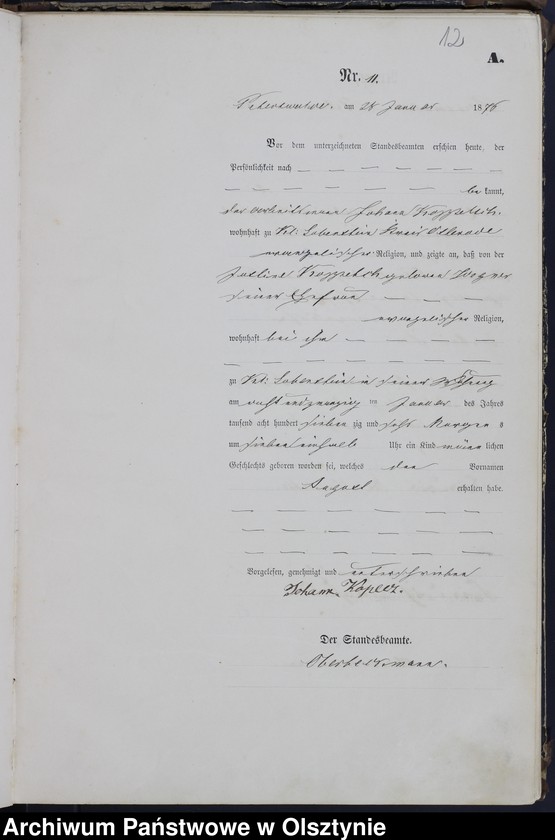 12
A.
Nr. 11.
Peterswalde. am 28 Januar 1876
Vor dem unterzeichneten Standesbeamten erschien heute, der
Persönlichkeit nach — — — — — —
— — — — — — — — be kannt,
der Arbeitsmann Johann
wohnhaft zu Kl: Lobenstein Kreis Osterode
evangelischer Religion, und zeigte an, daß von der
geborenen
seiner Ehefrau — — —
evangelischer Religion,
wohnhaft bei ihm — — — —
— — — — — — — —
zu Kl: Lobenstein in seiner Wohnung
am acht und zwanzig ten Januar des Jahres
tausend acht hundert sieben zig und sechs Morgens
um sieben einhalb Uhr ein Kind männ lichen
Geschlechts geboren worden sei, welches den Vornamen
August erhalten habe.
— — — — — — —
— — — — — —
— — — — — — —
Vorgelesen, genehmigt und unterschrieben
Johann
Der Standesbeamte.
Archiwum Państwowe w Olsztynie